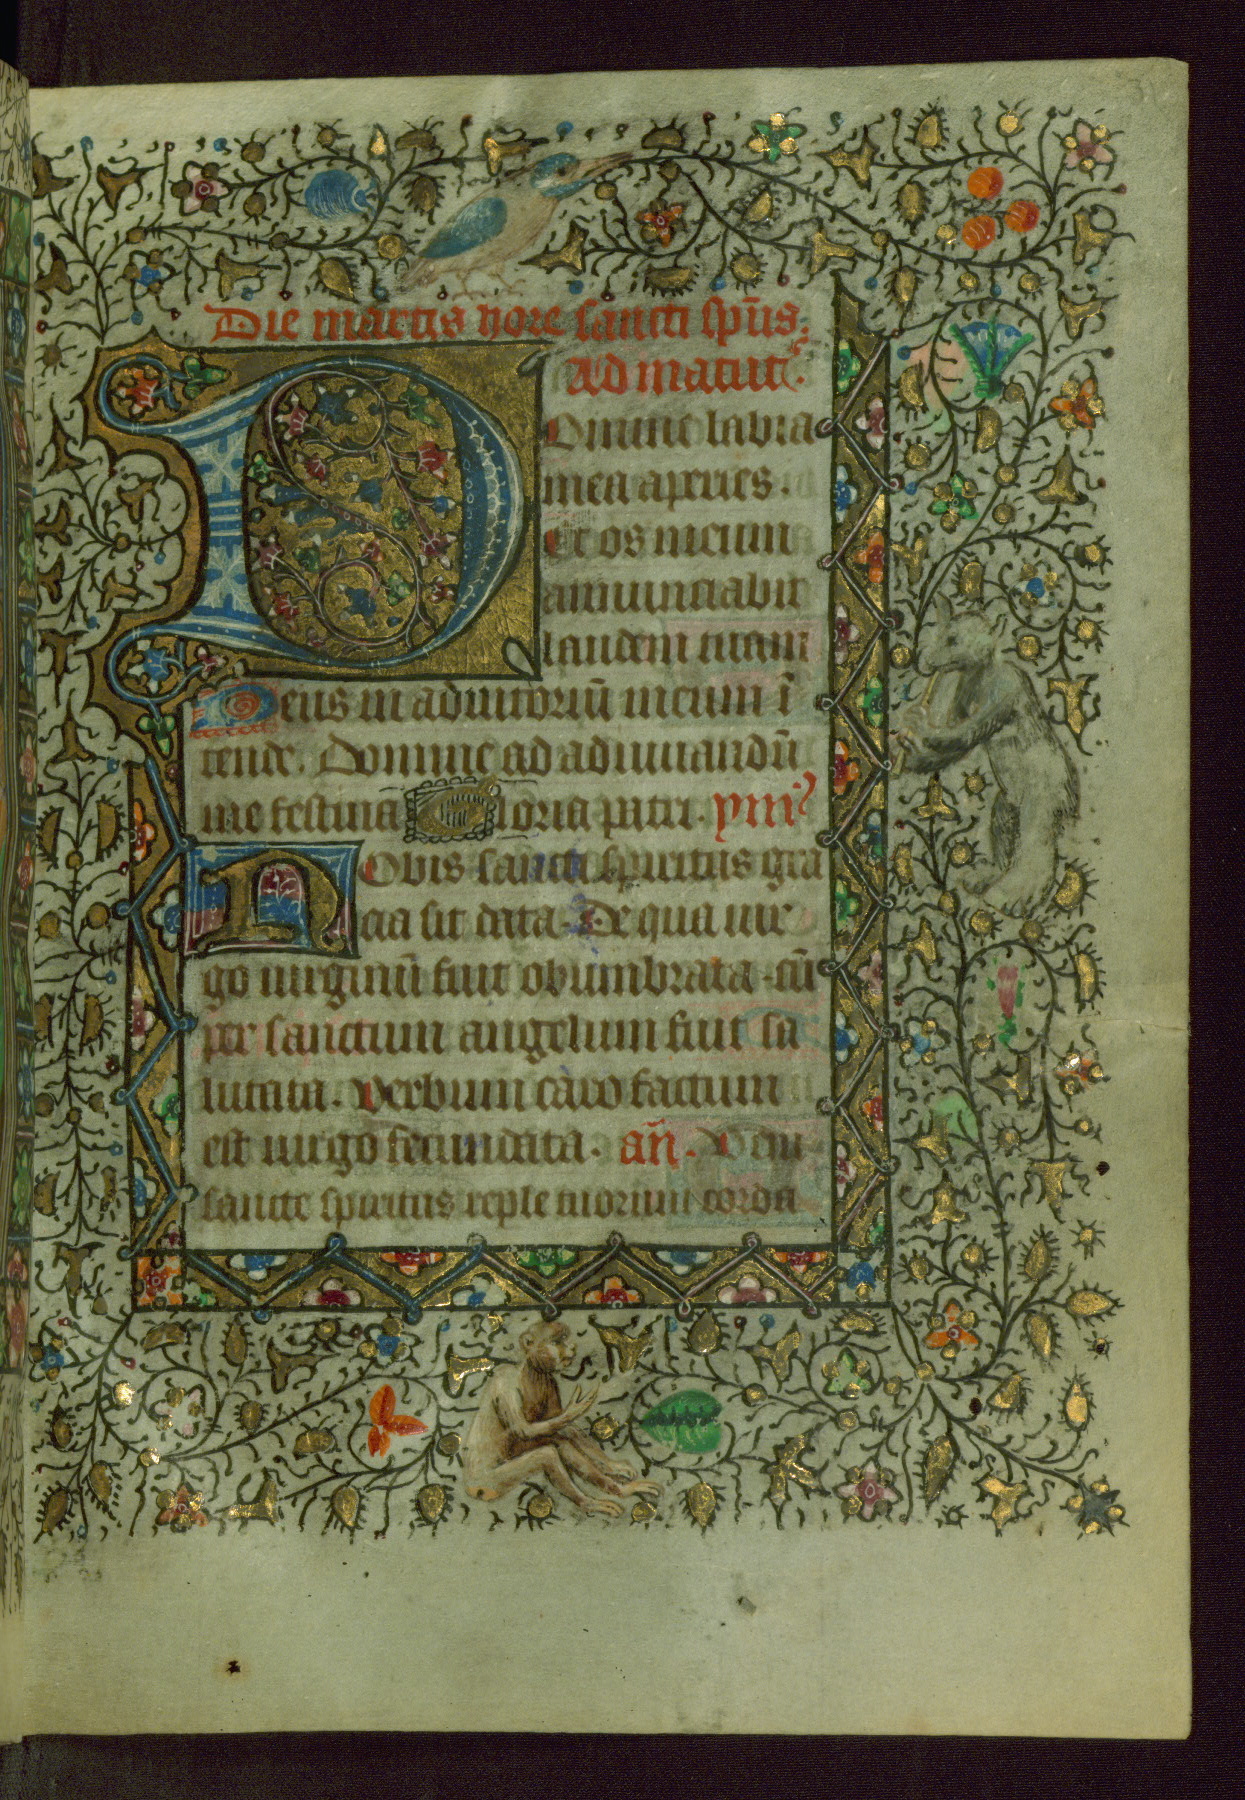 Die martis hore sancti sp̄us.
Ad matut̄.
Domine labia
mea aperies.
Et os meum
annunciabit
laudem tuam
Deus in adiutoriū meum ī
tende. Domine ad adiuuandū
me festina Gloria patri. ymꝰ
Nobis sancti spiritus gra
cia sit data. De qua uir
go uirginū fuit obumbrata. cū
per sanctum angelum fuit sa
lutata. Verbum caro factum
est uirgo fecundata. an̄. Veni
sancte spiritus reple tuorum corda